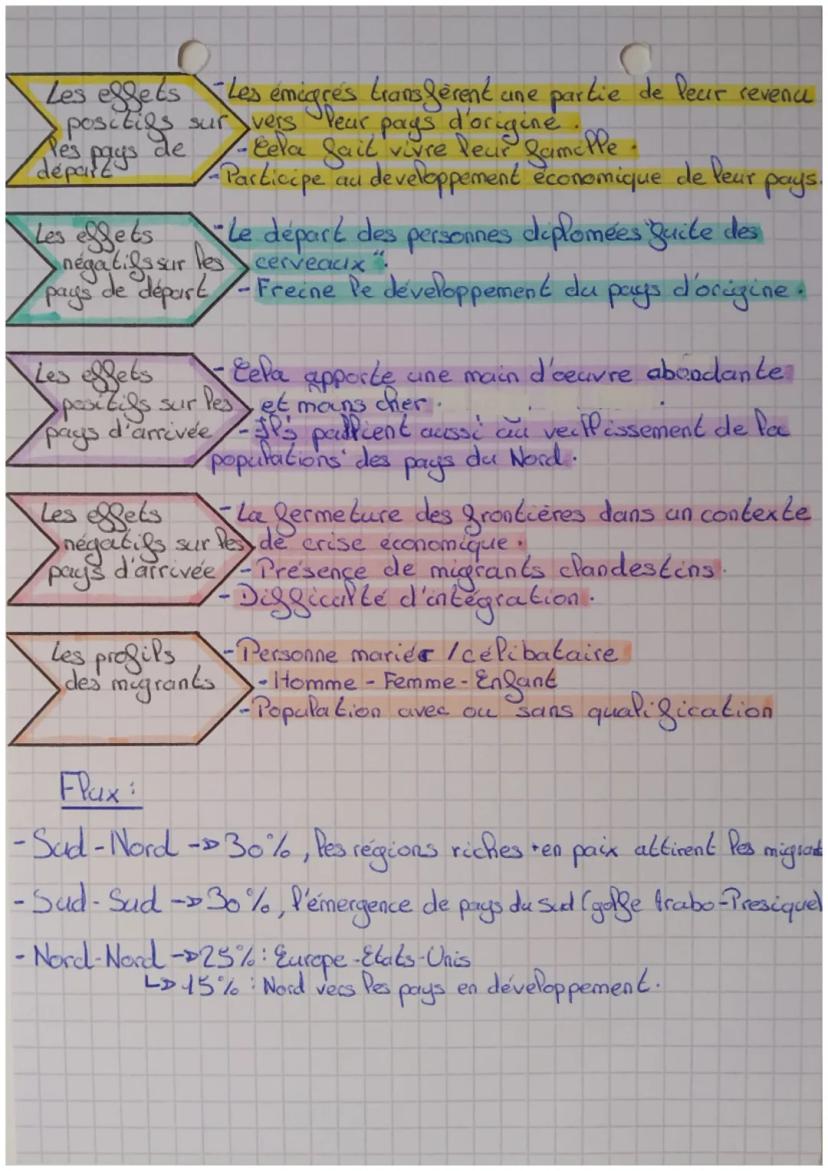 Les effets
positifs sur
les pays de
départ
- Les émigrés transfèrent une partie de leur revenu
vers leur pays d'origine.
- Cela fait vivre leur famille.
- Participe au developpement économique de leur pays.
Les effets
négatifs sur les
pays de départ
- Le départ des personnes diplomées "fuite des
cerveaux".
- Freine le développement du pays d'origine.
Les effets
positifs sur les
pays d'arrivée
- Cela apporte une main d'œuvre abondante
et moins cher.
- Ils pallient aussi au veillissement de la
populations des pays du Nord.
Les effets
négatifs sur les
pays d'arrivée
- La fermeture des frontières dans un contexte
de crise économique.
- Présence de migrants clandestins.
- Difficulté d'intégration.
Les profils
des migrants
- Personne mariée / célibataire
- Homme - Femme - Enfant
- Population avec ou sans qualification
Flux :
- Sud - Nord -> 30%, les régions riches + en paix attirent les migrant
- Sud - Sud -> 30%, l'émergence de pays du sud (golfe Arabo-Presique)
- Nord-Nord -> 25% : Europe - Etats-Unis
↳ 15% : Nord vers les pays en développement.